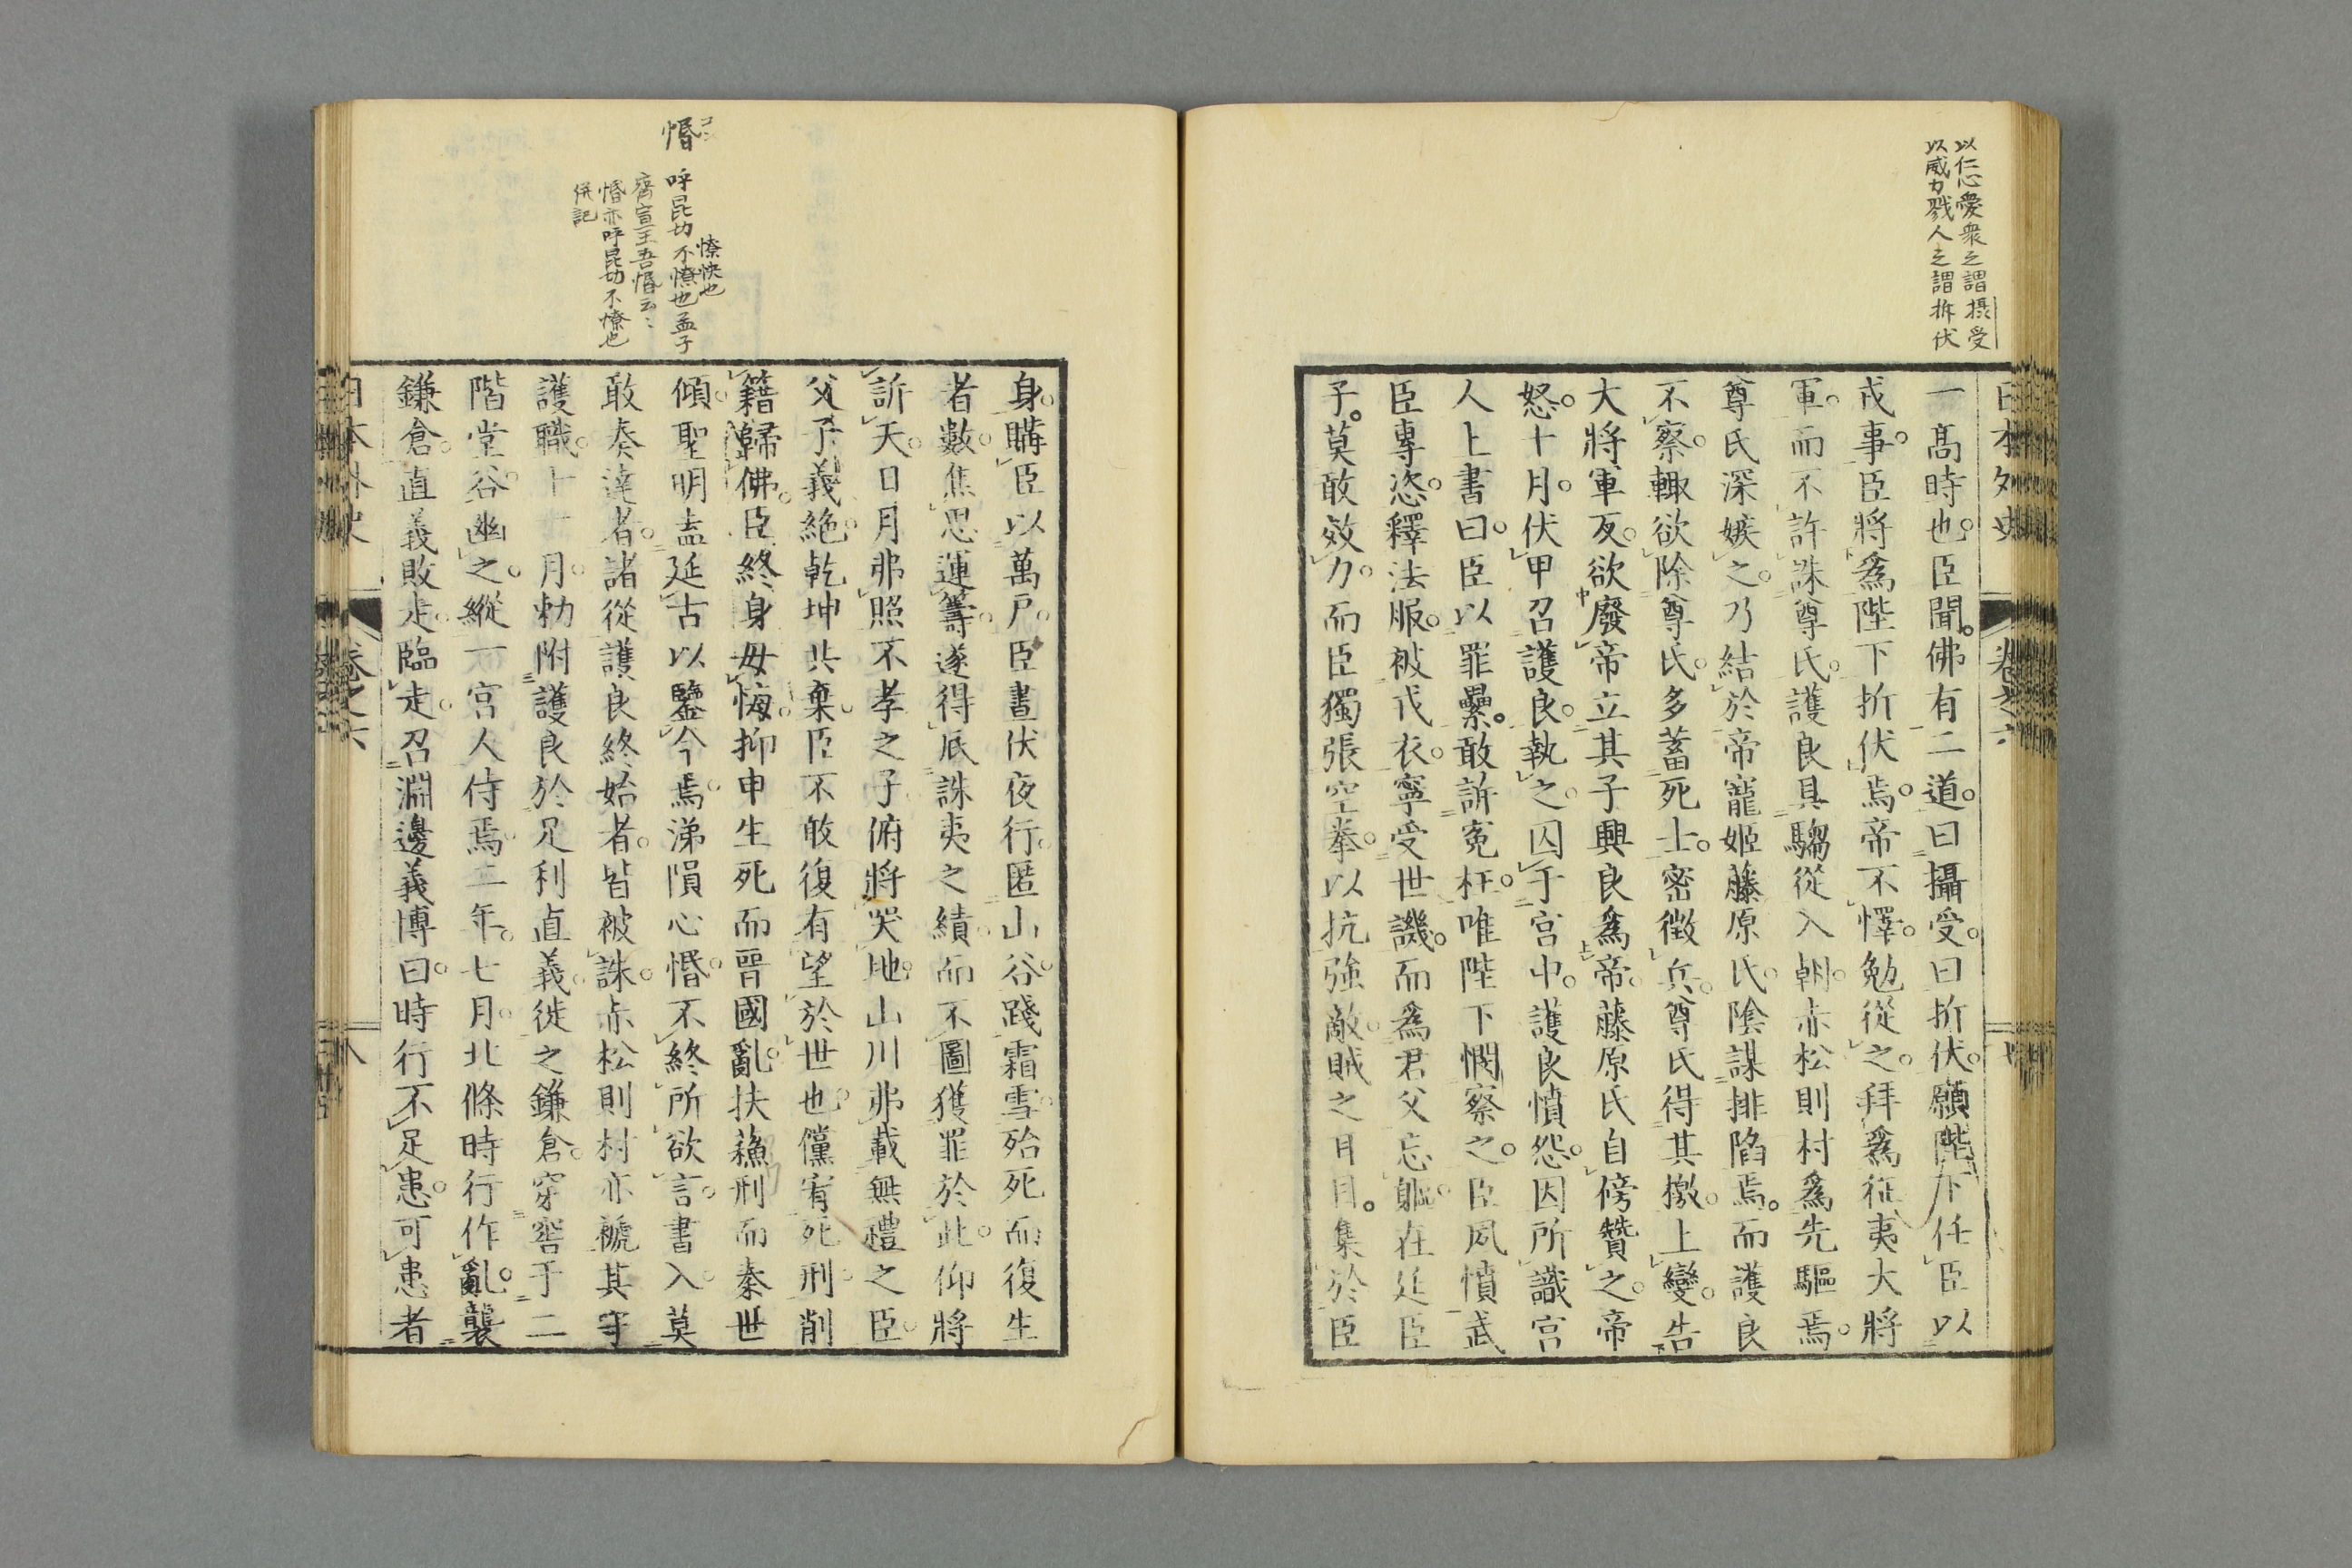 以仁心愛衆之謂摂受
以威力戮人之謂拆伏
日本外史 卷之六
一高時也。臣聞。佛有二道。曰攝受。曰折伏。願陛下任臣以
戎事。臣將爲陛下折伏焉。帝不懌。勉從之。拜爲征夷大將
軍。而不許誅尊氏。護良具騶從入朝。赤松則村爲先驅焉。
尊氏深嫉之。乃結於帝寵姬藤原氏。陰謀排陷焉。而護良
不察。輙欲除尊氏。多蓄死士。密徵兵。尊氏得其檄。上變。告
大將軍反。欲廢帝立其子興良爲帝。藤原氏自傍贊之。帝
怒。十月。伏甲召護良。執之。囚于宮中。護良憤怨。因所識宮
人上書曰。臣以罪纍。敢訴寃枉。唯陛下憫察之。臣夙憤武
臣專恣。釋法服。被戎衣。寧受世譏。而爲君父忘軀。在廷臣
子。莫敢效力。而臣獨張空拳。以抗強敵。賊之日目。集於臣
惛 コン
呼昆切 不憭也 孟子
憭快也
齊宣王吾惛云々
惛亦呼昆切不憭也
併記
身。購臣以萬戶。臣晝伏夜行。匿山谷。踐霜雪。殆死而復生
者數。焦思運籌。遂得底誅夷之績。而不圖獲罪於此。仰將
訴天。日月弗照不孝之子。俯將哭地。山川弗載無禮之臣。
父子義絕。乾坤共棄。臣不敢復有望於世也。儻宥死刑。削
籍歸佛。臣終身毋悔。抑申生死而晉國亂。扶蘓刑而秦世
傾。聖明盍延古以鑒今焉。涕隕心惛。不終所欲言。書入。莫
敢奏達者。諸從護良終始者。皆被誅。赤松則村亦褫其守
護職。十一月。勅附護良於足利直義。徙之鎌倉。穿窖于二
階堂谷。幽之。縱一宮人侍焉。二年。七月。北條時行作亂。襲
鎌倉。直義敗走。臨走。召淵邊義博。曰。時行不足患。可患者
日本外史 卷之六 八